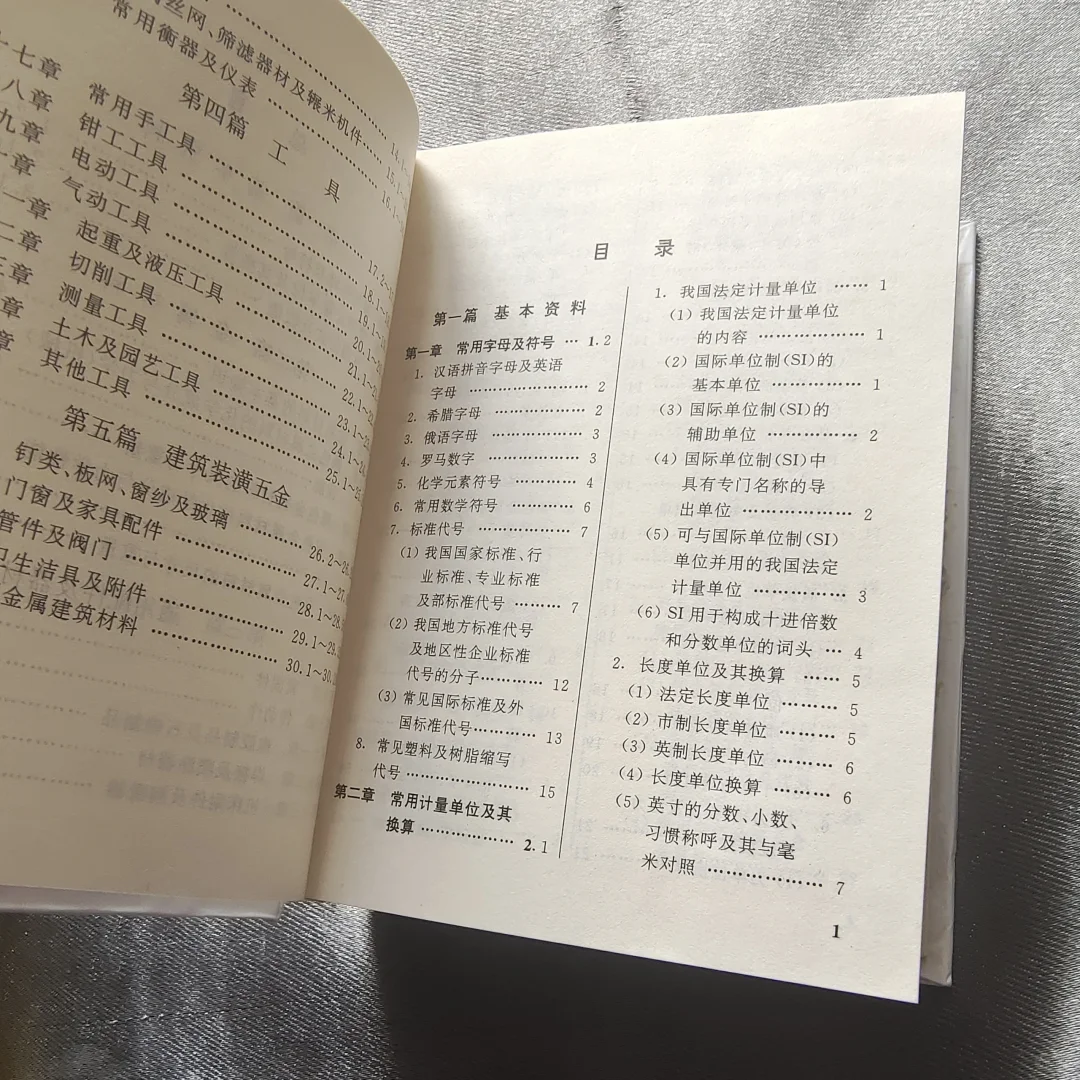 丝网、筛滤器材及辗米机件……
常用衡器及仪表……
第四篇 工 具
十七章 常用手工具……
八章 钳工工具……
九章 电动工具……
十章 气动工具……
一章 起重及液压工具……
二章 切削工具……
三章 测量工具……
章 土木及园艺工具……
章 其他工具……
第五篇 建筑装潢五金
钉类、板网、窗纱及玻璃……26.2~
门窗及家具配件……27.1~
管件及阀门……28.1~
卫生洁具及附件……29.1~
金属建筑材料……30.1~30.
目 录
第一篇 基本资料
第一章 常用字母及符号 … 1.2
1. 汉语拼音字母及英语
字母 …………………… 2
2. 希腊字母 ……………… 2
3. 俄语字母 ……………… 3
4. 罗马数字 ……………… 3
5. 化学元素符号 ………… 4
6. 常用数学符号 ………… 6
7. 标准代号 ……………… 7
(1) 我国国家标准、行
业标准、专业标准
及部标准代号 ……… 7
(2) 我国地方标准代号
及地区性企业标准
代号的分子………… 12
(3) 常见国际标准及外
国标准代号………… 13
8. 常见塑料及树脂缩写
代号 …………………… 15
第二章 常用计量单位及其
换算 ……………… 2.1
1. 我国法定计量单位 …… 1
(1) 我国法定计量单位
的内容 ………………… 1
(2) 国际单位制(SI)的
基本单位 …………… 1
(3) 国际单位制(SI)的
辅助单位 …………… 2
(4) 国际单位制(SI)中
具有专门名称的导
出单位 ………………… 2
(5) 可与国际单位制(SI)
单位并用的我国法定
计量单位 …………… 3
(6) SI用于构成十进倍数
和分数单位的词头 … 4
2. 长度单位及其换算 …… 5
(1) 法定长度单位 ……… 5
(2) 市制长度单位 ……… 5
(3) 英制长度单位 ……… 6
(4) 长度单位换算 ……… 6
(5) 英寸的分数、小数、
习惯称呼及其与毫
米对照 ……………… 7
1